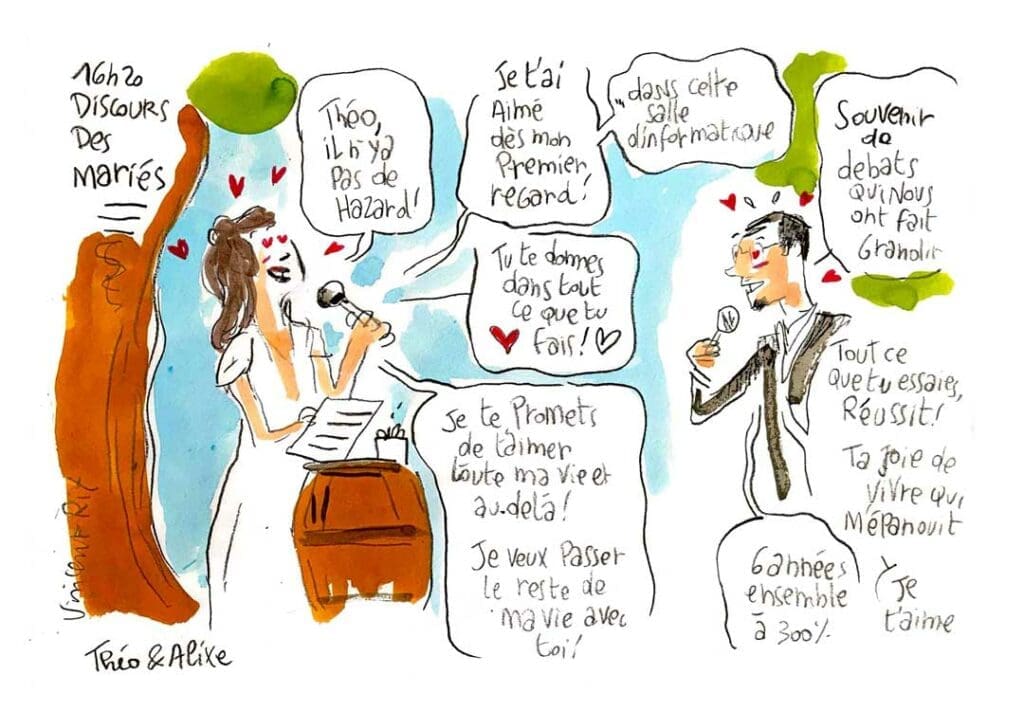 16h20
DISCOURS
Des
Mariés
Théo,
il n'ya
Pas de
Hazard!
Je t'ai
Aimé
dès mon
Premier
regard!
"dans cette
salle
d'informatique
Souvenir
de
debats
Qui Nous
ont fait
Grandir
Tu te donnes
dans tout
ce que tu
fais!
Tout ce
que tu essaies,
Réussit!
Ta Joie de
vivre qui
M'épanouit
Je te Promets
de t'aimer
toute ma vie et
au-delà!
Je veux Passer
le reste de
ma vie avec
toi!
6 années
ensemble
à 300%
Je
t'aime
Vincent Rif
Théo & Alixe